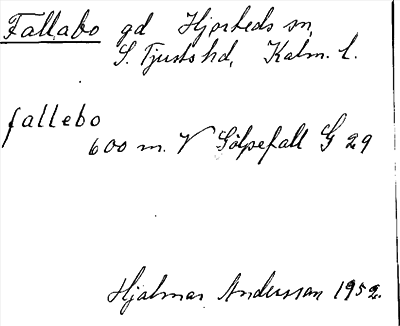 Fallabo gd Hjorteds sn,
S. Tjusts hd, Kalm. l.
fallebo
600 m. V Sölpefall G 29
Hjalmar Andersson 1952.